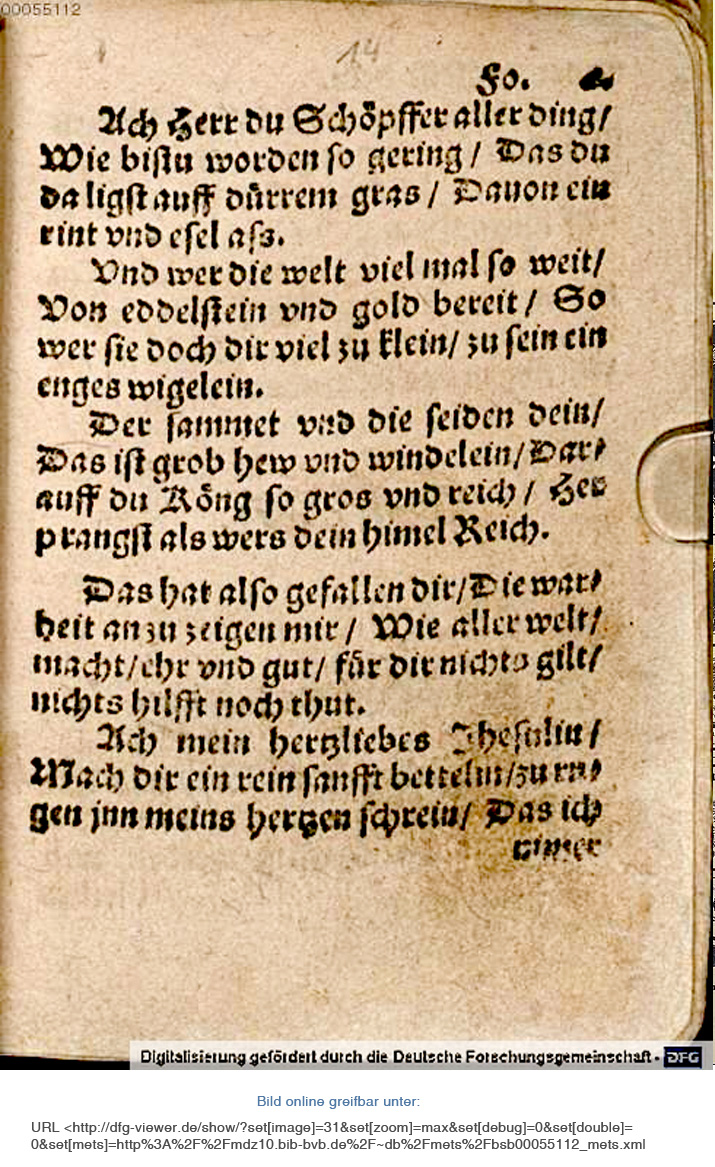 00055112
14
Fo.
Ach Herr du Schöpffer aller ding/
Wie bistu worden so gering / Das du
da ligst auff dürrem gras / Dauon ein
rint vnd esel ass.
Vnd wer die welt viel mal so weit/
Von eddelstein vnd gold bereit / So
wer sie doch dir viel zu klein/ zu sein ein
enges wigelein.
Der sammet vnd die seiden dein/
Das ist grob hew vnd windelein/ Dar-
auff du Köng so gros vnd reich / Her
prangst als wers dein himel Reich.
Das hat also gefallen dir/ Die war-
heit an zu zeigen mir / Wie aller welt/
macht/ ehr vnd gut/ für dir nichts gilt/
nichts hilfft noch thut.
Ach mein hertzliebes Jhesulin/
Mach dir ein rein sanfft bettelin/ zu ru-
gen jnn meins hertzen schrein/ Das ich
nimer
Digitalisierung gefördert durch die Deutsche Forschungsgemeinschaft - DFG
Bild online greifbar unter:
URL <http://dfg-viewer.de/show/?set[image]=31&set[zoom]=max&set[debug]=0&set[double]=
0&set[mets]=http%3A%2F%2Fmdz10.bib-bvb.de%2F~db%2Fmets%2Fbsb00055112_mets.xml